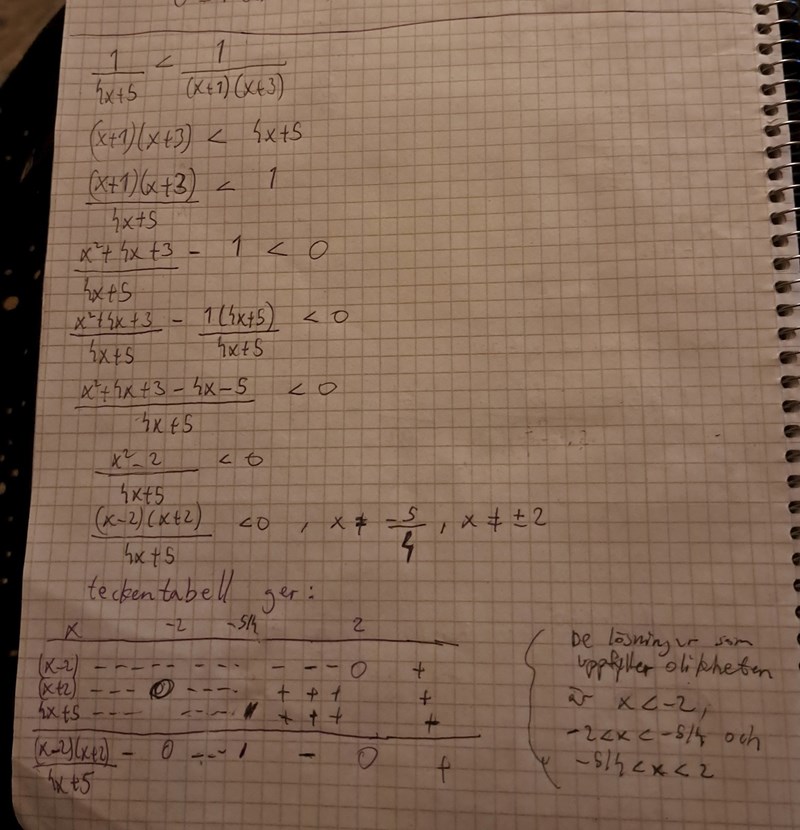 1/(4x+5) < 1/((x+1)(x+3))
(x+1)(x+3) < 4x+5
(x+1)(x+3)/(4x+5) < 1
(x²+4x+3)/(4x+5) - 1 < 0
(x²+4x+3)/(4x+5) - 1(4x+5)/(4x+5) < 0
(x²+4x+3-4x-5)/(4x+5) < 0
(x²-2)/(4x+5) < 0
(x-2)(x+2)/(4x+5) <0 , x ≠ -5/4 , x ≠ ±2
teckentabell ger:
x -2 -5/4 2
(x-2) - - - - - - - - - - - 0 +
(x+2) - - - 0 - - - - + + + +
4x+5 - - - - - - - + + + +
(x-2)(x+2)/(4x+5) - 0 - - - - 0 +
De lösningar som
uppfyller olikheten
är x<-2,
-2<x<-5/4 och
-5/4<x<2